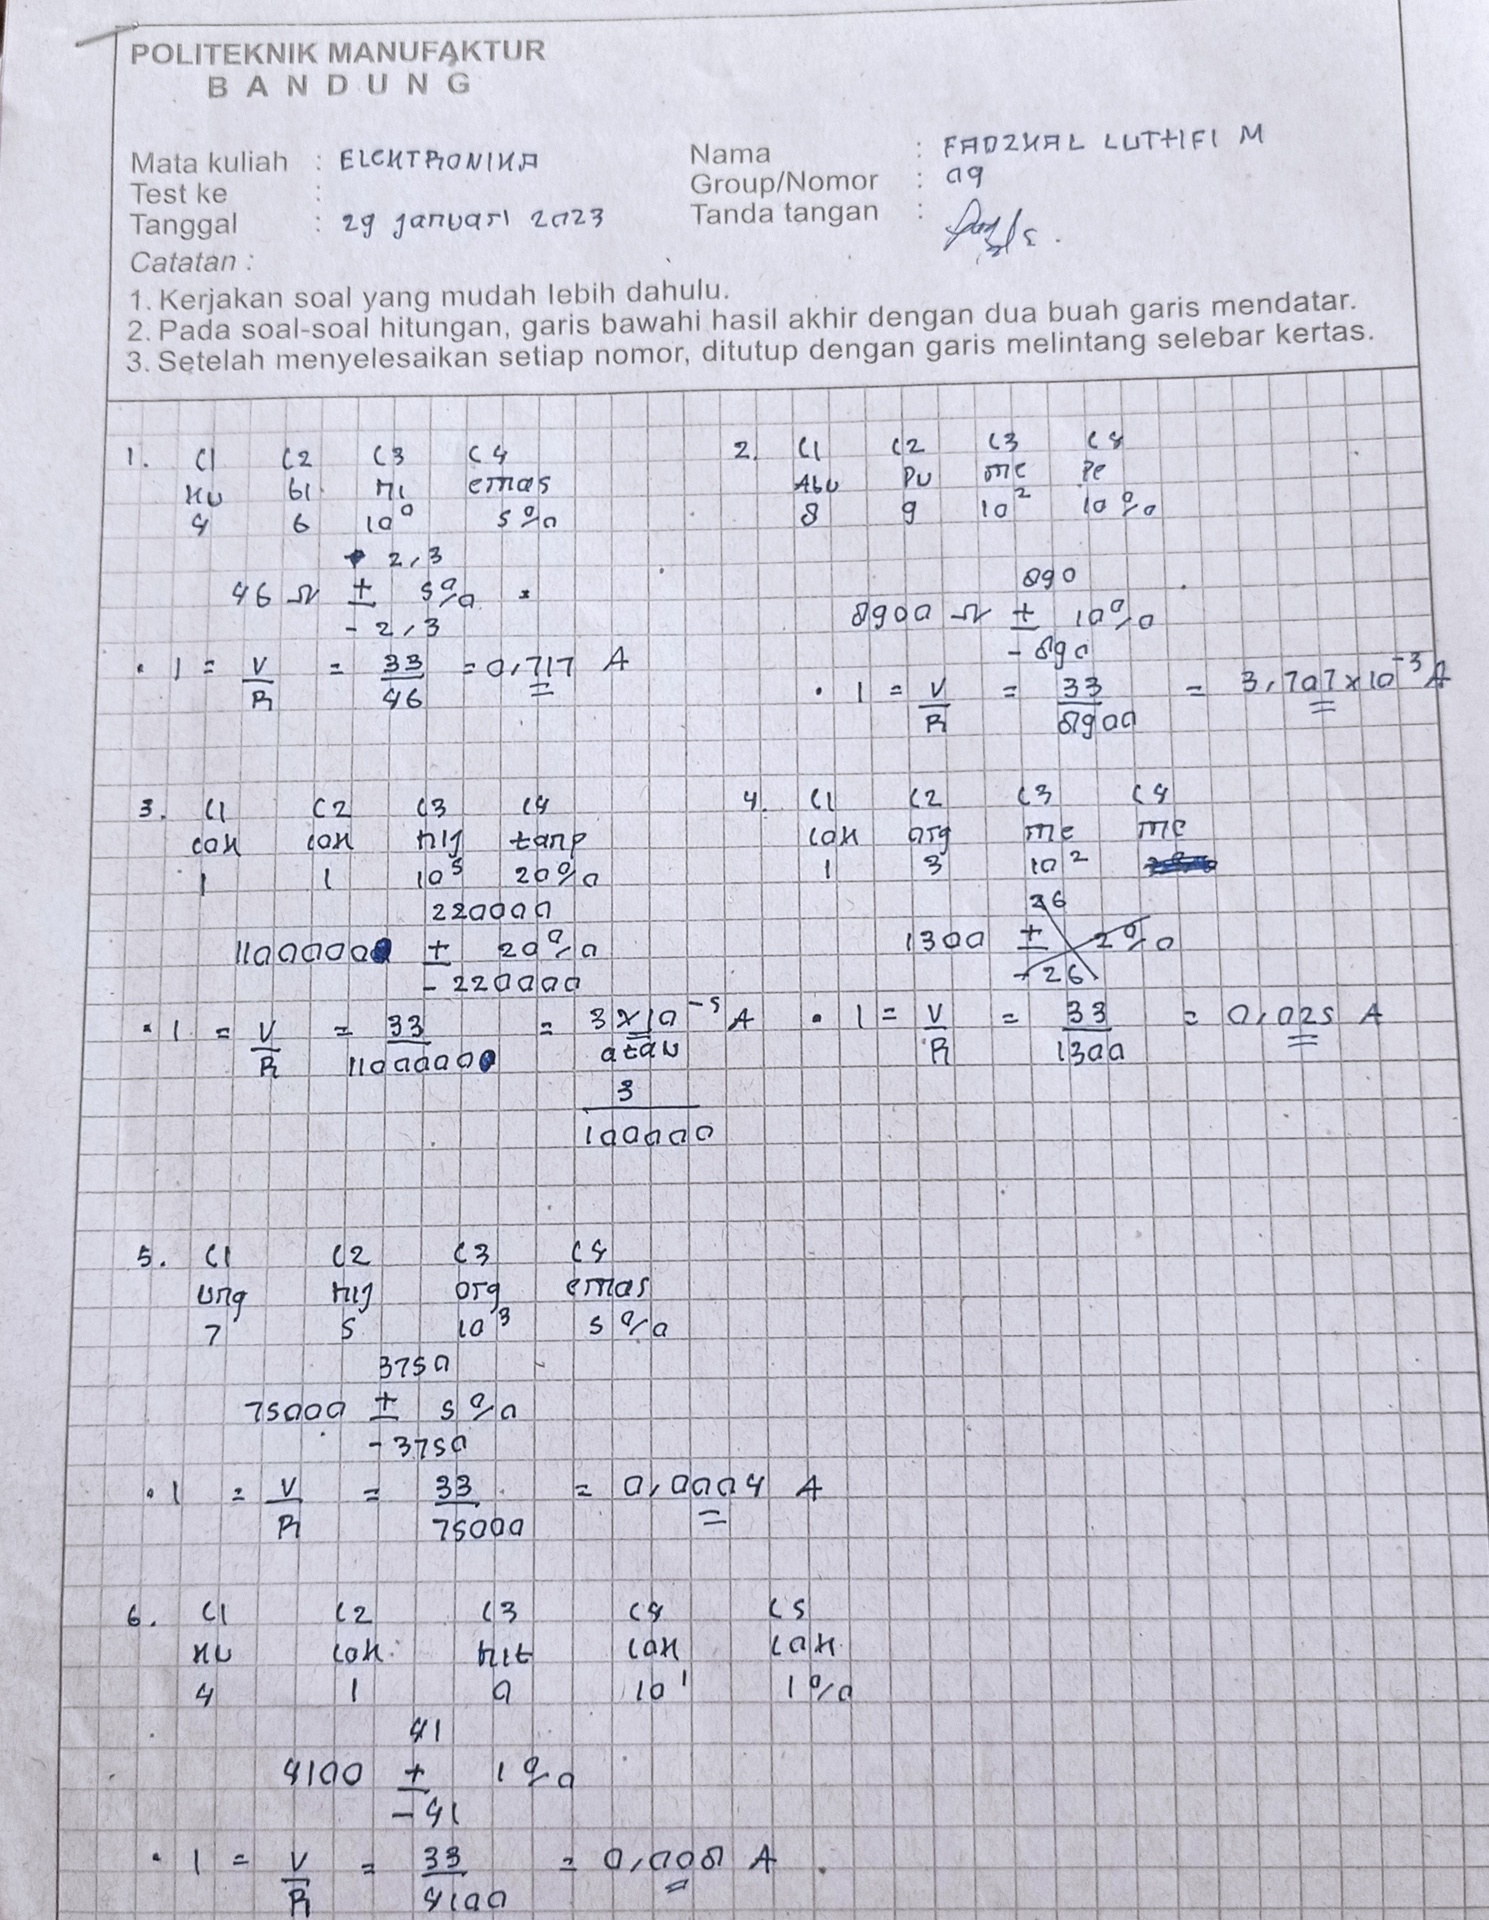 POLITEKNIK MANUFAKTUR
BANDUNG
Mata kuliah : ELEKTRONIKA
Nama : FADZKAL LUTHFI M
Test ke :
Group/Nomor : 09
Tanggal : 29 januari 2023
Tanda tangan :
Catatan :
1. Kerjakan soal yang mudah lebih dahulu.
2. Pada soal-soal hitungan, garis bawahi hasil akhir dengan dua buah garis mendatar.
3. Setelah menyelesaikan setiap nomor, ditutup dengan garis melintang selebar kertas.
1. C1 C2 C3 C4
Ku bi hi emas
4 6 10⁰ 5%
2,3
46 Ω ± 5%
- 2,3
• I = V/R = 33/46 = 0,717 A
2. C1 C2 C3 C4
Abu Pu me Pe
8 9 10² 10%
890
8900 Ω ± 10%
- 890
• I = V/R = 33/8900 = 3,707 x 10⁻³ A
3. C1 C2 C3 C4
cok cok hij tanp
1 1 10⁵ 20%
220000
1100000 ± 20%
- 220000
• I = V/R = 33/1100000 = 3 x 10⁻⁵ A
atau
3/100000
4. C1 C2 C3 C4
cok org me me
1 3 10²
26
1300 ± 2%
- 26
• I = V/R = 33/1300 = 0,025 A
5. C1 C2 C3 C4
ung hij org emas
7 5 10³ 5%
3750
75000 ± 5%
- 3750
• I = V/R = 33/75000 = 0,0004 A
6. C1 C2 C3 C4 C5
Ku cok hit cok cok
4 1 0 10¹ 1%
41
4100 ± 1%
- 41
• I = V/R = 33/4100 = 0,008 A